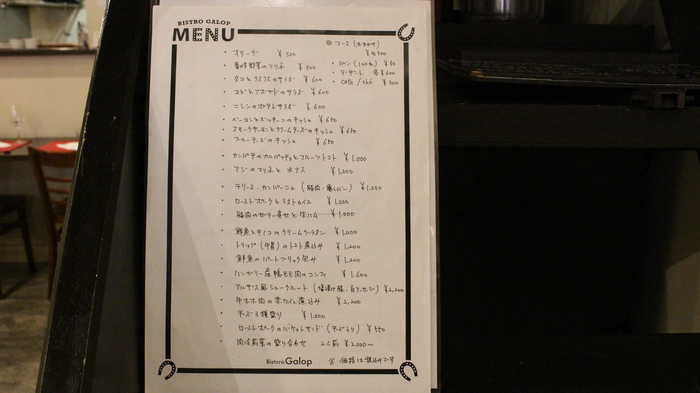 BISTRO GALOP
MENU
コース(おまかせ)
・オリーヴ ¥300
・パン(1人様) ¥50
・デザート 各¥600
・cafe / thé ¥300
・タコとクスクスのサラダ ¥600
・エビとアボカドのサラダ ¥600
・ニシンのポテトサラダ ¥600
・ベーコンとズッキーニのキッシュ ¥650
・スモークサーモンとクリームチーズのキッシュ ¥650
・ブルーチーズのキッシュ ¥650
・カンパチのカルパッチョとフルーツトマト ¥1,000
・アジのマリネと水ナス ¥1,000
・テリーヌ・カンパーニュ(豚肉・鶏レバー) ¥1,000
・ローストポークとラタトゥイユ ¥1,000
・豚肉のゼリー寄せと生ハム ¥1,000
・鮮魚とキノコのクリームグラタン ¥1,000
・トリップ(牛胃)のトマト煮込み ¥1,200
・鮮魚のパートブリック包み ¥1,200
・ハンガリー産鴨モモ肉のコンフィ ¥1,600
・アルザス風シュークルート(塩漬け豚・白ソーセージ) ¥2,200
・牛ホホ肉の赤ワイン煮込み ¥2,200
・チーズ3種盛り ¥1,000
・ローストポークのバゲットサンド(チーズ入り) ¥550
・前菜の盛り合わせ 2人前 ¥2,000〜
Bistoro Galop
※価格は税込みです